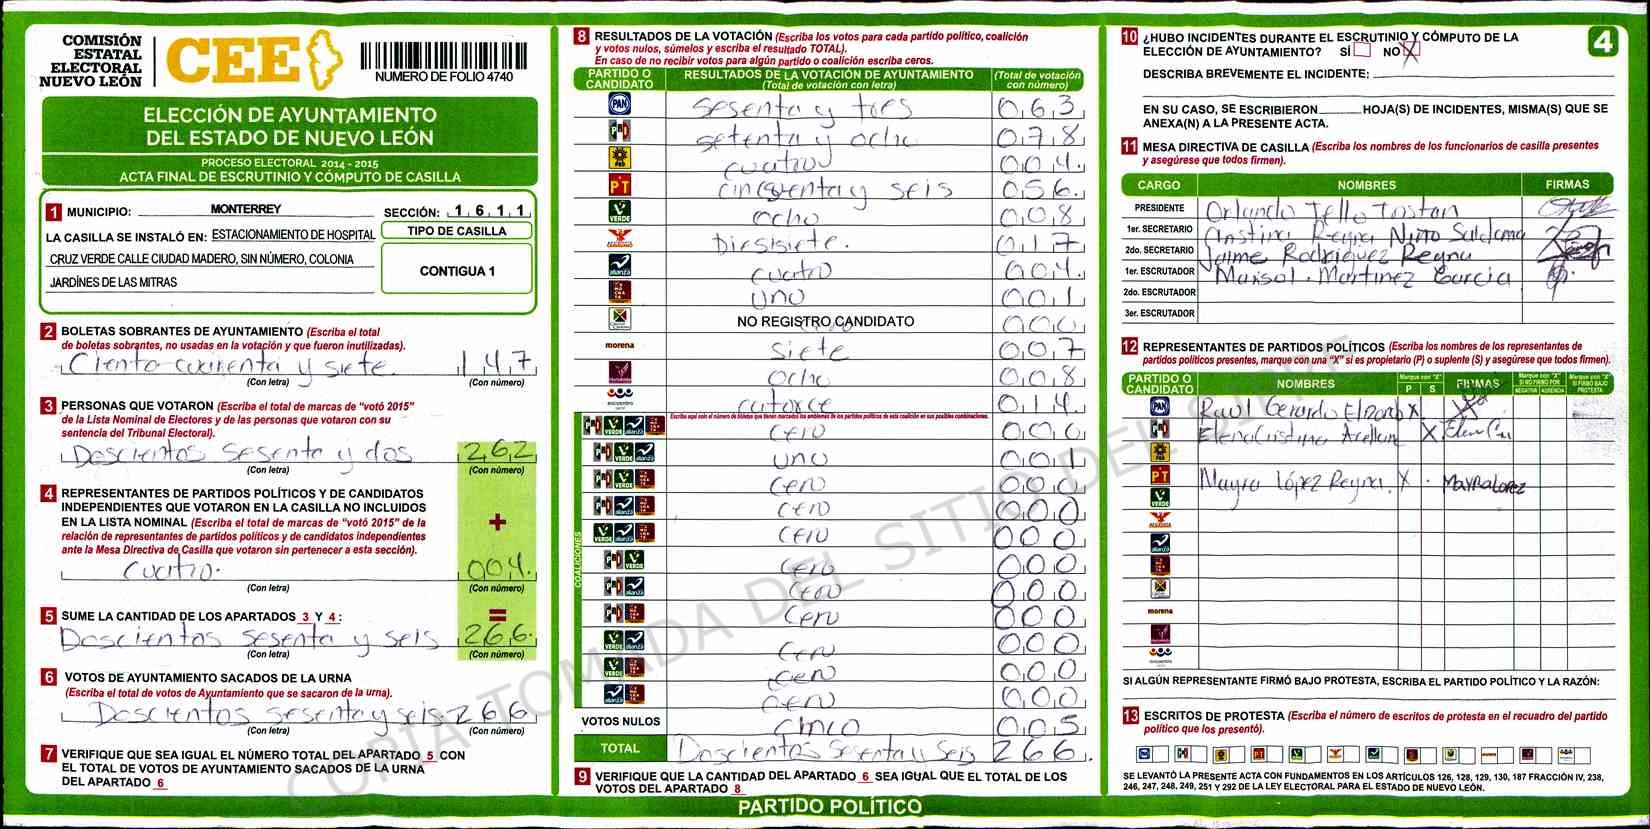 COMISIÓN
ESTATAL
ELECTORAL
NUEVO LEÓN
CEE
NUMERO DE FOLIO 4740
ELECCIÓN DE AYUNTAMIENTO
DEL ESTADO DE NUEVO LEÓN
PROCESO ELECTORAL 2014 - 2015
ACTA FINAL DE ESCRUTINIO Y CÓMPUTO DE CASILLA
1 MUNICIPIO: MONTERREY SECCIÓN: 1 6 1 1
LA CASILLA SE INSTALÓ EN: ESTACIONAMIENTO DE HOSPITAL
CRUZ VERDE CALLE CIUDAD MADERO, SIN NÚMERO, COLONIA
JARDÍNES DE LAS MITRAS
TIPO DE CASILLA
CONTIGUA 1
2 BOLETAS SOBRANTES DE AYUNTAMIENTO (Escriba el total
de boletas sobrantes, no usadas en la votación y que fueron inutilizadas).
Ciento cuarenta y siete 1 4 7
(Con letra) (Con número)
3 PERSONAS QUE VOTARON (Escriba el total de marcas de "votó 2015"
de la Lista Nominal de Electores y de las personas que votaron con su
sentencia del Tribunal Electoral).
Doscientos sesenta y dos 2 6 2
(Con letra) (Con número)
4 REPRESENTANTES DE PARTIDOS POLÍTICOS Y DE CANDIDATOS
INDEPENDIENTES QUE VOTARON EN LA CASILLA NO INCLUIDOS
EN LA LISTA NOMINAL (Escriba el total de marcas de "votó 2015" de la
relación de representantes de partidos políticos y de candidatos independientes
ante la Mesa Directiva de Casilla que votaron sin pertenecer a esta sección).
+
Cuatro. 0 0 4
(Con letra) (Con número)
5 SUME LA CANTIDAD DE LOS APARTADOS 3 Y 4: =
Doscientos sesenta y seis 2 6 6
(Con letra) (Con número)
6 VOTOS DE AYUNTAMIENTO SACADOS DE LA URNA
(Escriba el total de votos de Ayuntamiento que se sacaron de la urna).
Doscientos sesenta y seis 2 6 6
(Con letra) (Con número)
7 VERIFIQUE QUE SEA IGUAL EL NÚMERO TOTAL DEL APARTADO 5 CON
EL TOTAL DE VOTOS DE AYUNTAMIENTO SACADOS DE LA URNA
DEL APARTADO 6
8 RESULTADOS DE LA VOTACIÓN (Escriba los votos para cada partido político, coalición
y votos nulos, súmelos y escriba el resultado TOTAL).
En caso de no recibir votos para algún partido o coalición escriba ceros.
PARTIDO O CANDIDATO RESULTADOS DE LA VOTACIÓN DE AYUNTAMIENTO (Total de votación con letra) (Total de votación con número)
PAN sesenta y tres 0 6 3
PRI setenta y ocho 0 7 8
PRD cuatro 0 0 4
PT cincuenta y seis 0 5 6
VERDE ocho 0 0 8
Diesisiete. 0 1 7
alianza cuatro 0 0 4
uno 0 0 1
NO REGISTRO CANDIDATO 0 0 0
morena siete 0 0 7
ocho 0 0 8
encuentro catorce 0 1 4
COALICIONES
Escriba aquí con el número de boletas que tienen marcados los emblemas de los partidos políticos de esta coalición en sus posibles combinaciones.
cero 0 0 0
uno 0 0 1
cero 0 0 0
cero 0 0 0
cero 0 0 0
cero 0 0 0
cero 0 0 0
cero 0 0 0
cero 0 0 0
cero 0 0 0
cero 0 0 0
VOTOS NULOS cinco 0 0 5
TOTAL Doscientos sesenta y seis 2 6 6
9 VERIFIQUE QUE LA CANTIDAD DEL APARTADO 6 SEA IGUAL QUE EL TOTAL DE LOS
VOTOS DEL APARTADO 8
PARTIDO POLÍTICO
10 ¿HUBO INCIDENTES DURANTE EL ESCRUTINIO Y CÓMPUTO DE LA
ELECCIÓN DE AYUNTAMIENTO? SÍ NO X
4
DESCRIBA BREVEMENTE EL INCIDENTE:
EN SU CASO, SE ESCRIBIERON HOJA(S) DE INCIDENTES, MISMA(S) QUE SE
ANEXA(N) A LA PRESENTE ACTA.
11 MESA DIRECTIVA DE CASILLA (Escriba los nombres de los funcionarios de casilla presentes
y asegúrese que todos firmen).
CARGO NOMBRES FIRMAS
PRESIDENTE Orlando Tello Tostan
1er. SECRETARIO Cristina Reyna Nuto Saldama
2do. SECRETARIO Jaime Rodriguez Reyna
1er. ESCRUTADOR Marisol. Martinez Garcia
2do. ESCRUTADOR
3er. ESCRUTADOR
12 REPRESENTANTES DE PARTIDOS POLÍTICOS (Escriba los nombres de los representantes de
partidos políticos presentes, marque con una "X" si es propietario (P) o suplente (S) y asegúrese que todos firmen).
PARTIDO O CANDIDATO NOMBRES Marque con "X" P S FIRMAS Marque con "X" SI NO FIRMÓ POR NEGATIVA AUSENCIA Marque con "X" SI FIRMÓ BAJO PROTESTA
PAN Raul Gerardo X
PRI Elena Cristina X
PRD
PT Mayra López Reyna X MAYRA LOPEZ
VERDE
alianza
morena
encuentro
SI ALGÚN REPRESENTANTE FIRMÓ BAJO PROTESTA, ESCRIBA EL PARTIDO POLÍTICO Y LA RAZÓN:
13 ESCRITOS DE PROTESTA (Escriba el número de escritos de protesta en el recuadro del partido
político que los presentó).
SE LEVANTÓ LA PRESENTE ACTA CON FUNDAMENTOS EN LOS ARTÍCULOS 126, 128, 129, 130, 187 FRACCIÓN IV, 238,
246, 247, 248, 249, 251 Y 292 DE LA LEY ELECTORAL PARA EL ESTADO DE NUEVO LEÓN.
COPIA TOMADA DEL SITIO DEL SIPPE